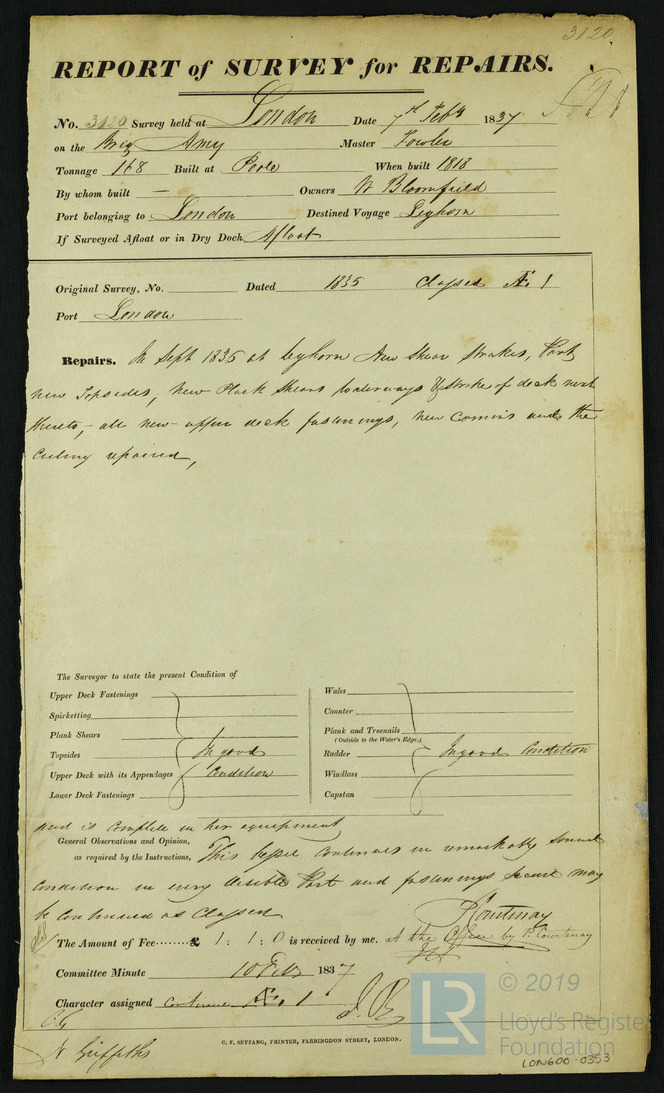 3120
REPORT of SURVEY for REPAIRS.
No. 3120 Survey held at London Date 7th Feby 1837
on the Brig Amy Master Fowler
Tonnage 168 Built at Poole When built 1818
By whom built — Owners W Bloomfield
Port belonging to London Destined Voyage Leghorn
If Surveyed Afloat or in Dry Dock Afloat
Original Survey, No. Dated 1835 Classed Æ 1
Port London
Repairs. In Sept 1835 at Leghorn New Shear Strakes, Part
new Topsides, New Plank Shears waterways & strake of deck next
thereto, - all new upper deck fastenings, new Comins and the
Ceiling repaired,
The Surveyor to state the present Condition of
Upper Deck Fastenings
Spirketting
Plank Shears
Topsides In good
Upper Deck with its Appendages Condition
Lower Deck Fastenings
Wales
Counter
Plank and Treenails
(Outside to the Water's Edge.)
Rudder In good Condition
Windlass
Capstan
and is complete in her equipment
General Observations and Opinion,
as required by the Instructions, This Vessel continues in remarkably sound
Condition in every visible Part and fastenings secure may
be Continued as Classed
P Courtenay
The Amount of Fee ........ £ 1 : 1 : 0 is received by me. at the Office by P. Courtenay
Committee Minute 10 Feby 1837
Character assigned continued Æ 1
N Griffiths
C. F. SEYFANG, PRINTER, FARRINGDON STREET, LONDON.
LR
© 2019
Lloyd's Register
Foundation
LON600-0353